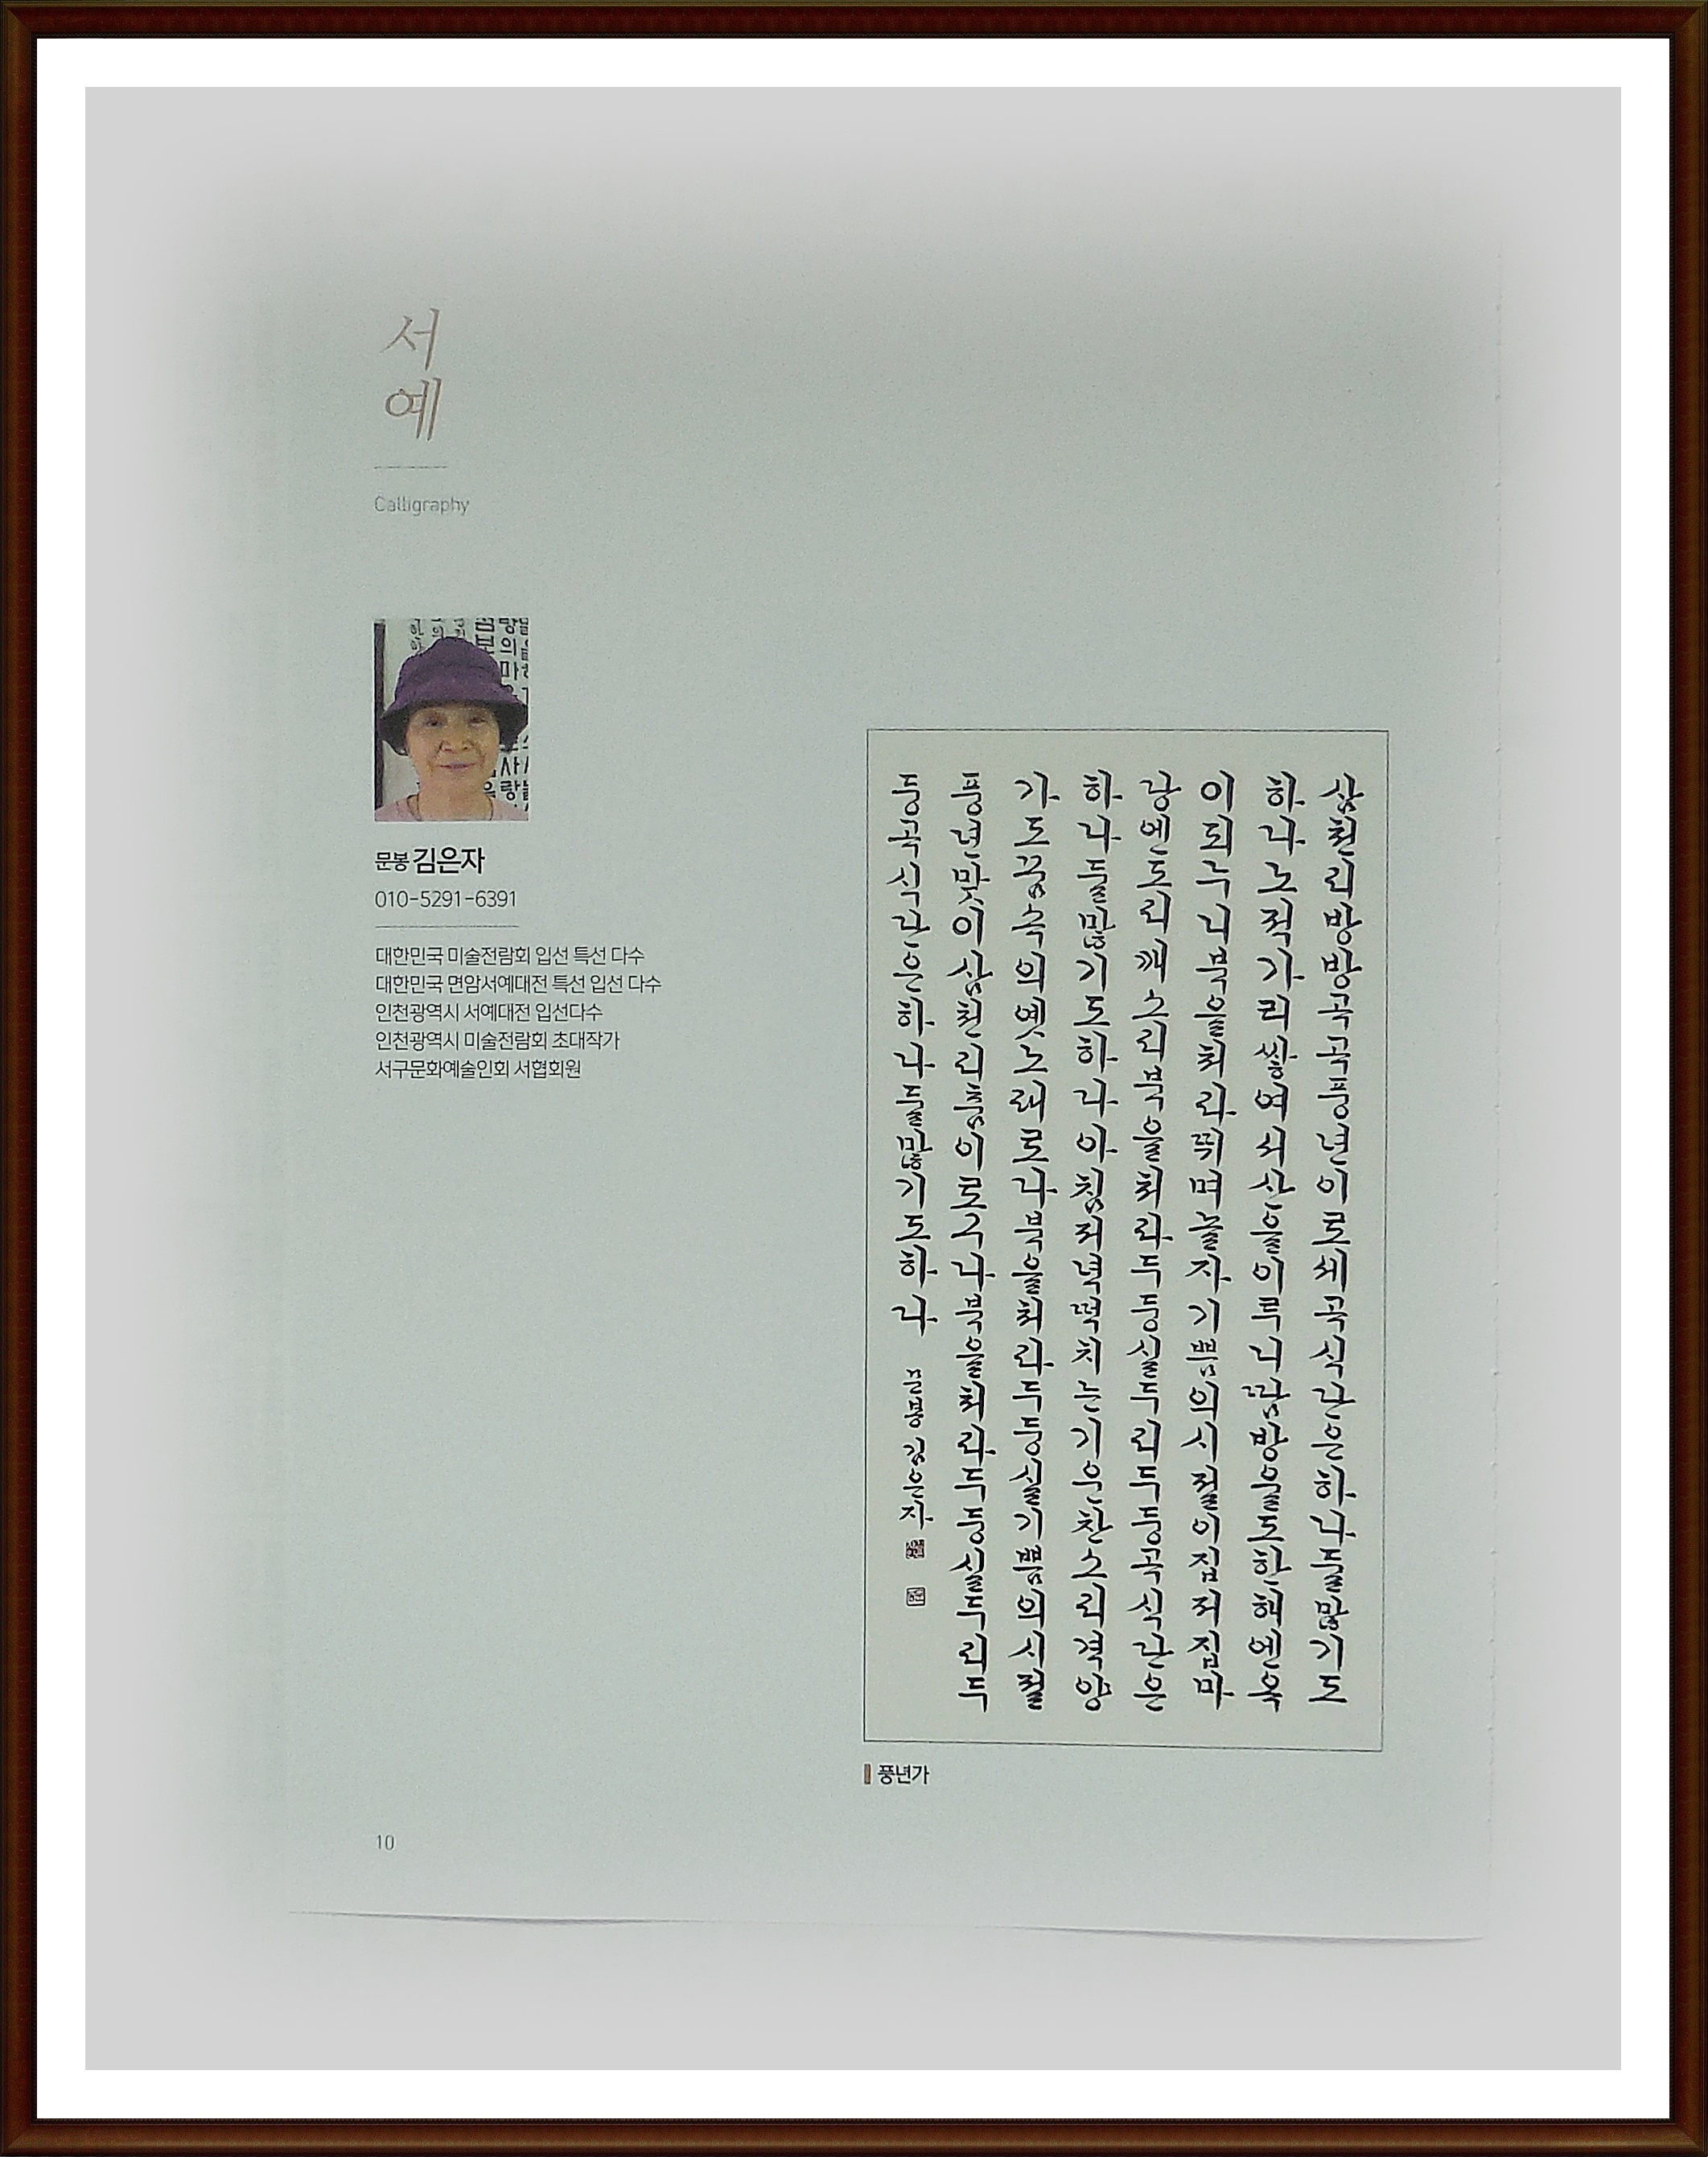 서
예
Calligraphy
문봉 김은자
010-5291-6391
대한민국 미술전람회 입선 특선 다수
대한민국 면암서예대전 특선 입선 다수
인천광역시 서예대전 입선다수
인천광역시 미술전람회 초대작가
서구문화예술인회 서협회원
삼천리방방곡곡풍년이로세곡식난은하나둘많기도
하나노적가리쌓여서산을이루니땀방울도한해엔옥
이되누니북을쳐라뛰며놀자기쁨의시절이집저집마
당엔도리깨소리북을쳐라두둥실두리두둥곡식난은
하나둘많기도하나아침저녁떡치는기운찬소리격양
가도꿈속의옛노래로나북을쳐라두둥실기쁨의시절
풍년맞이삼천리춤이로구나북을쳐라두둥실두리두
둥곡식난은하나둘많기도하나 문봉 김은자
풍년가
10